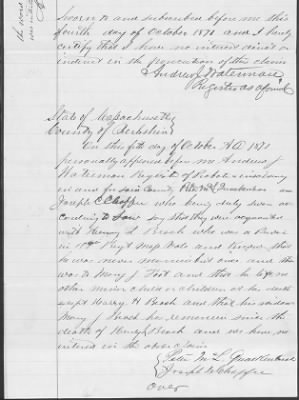 the word
Sworn to and subscribed before me this
fourth day of October 1871 and I hereby
certify that I have no interest direct or
indirect in the prosecution of this claim
Andrew J Waterman
Register as aforesaid
State of Massachusetts
County of Berkshire
On this 5th day of October AD 1871
personally appeared before me Andrew J
Waterman Register of Probate
in and for said County Peter McL Quackenbush and
Joseph C Choffee who being duly sworn ac
cording to Law say that they were acquainted
with Henry L Beach who was a
in Regt Mass Vols and know that
he was never married but once and that
was to Mary J Foot and that he left no
other minor child or children at his death
except Harry H Beach and that his widow
Mary J Beach has remarried since the
death of Henry L Beach and we have no
interest in the above claim
Peter McL Quackenbush
Joseph C Choffee
over